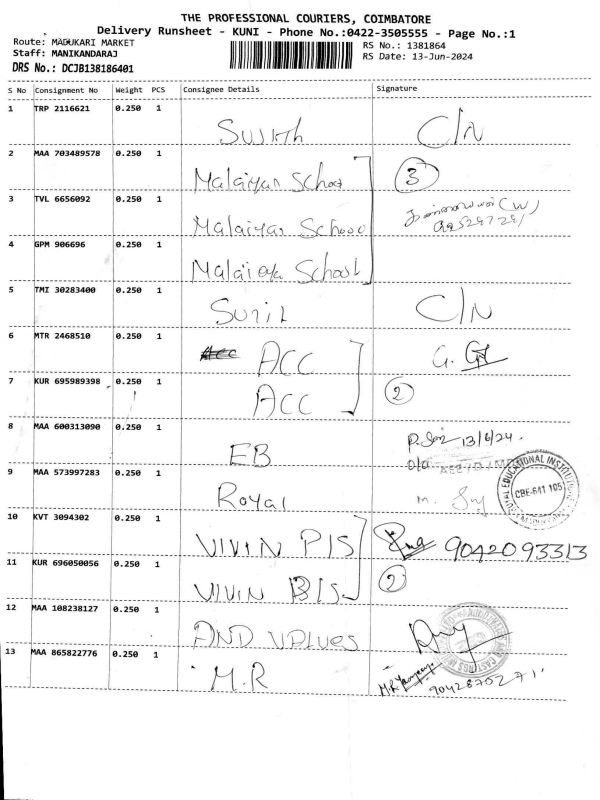 THE PROFESSIONAL COURIERS, COIMBATORE
Delivery Runsheet - KUNI - Phone No.:0422-3505555 - Page No.:1
Route: MADUKARI MARKET
Staff: MANIKANDARAJ
DRS No.: DCJB138186401
RS No.: 1381864
RS Date: 13-Jun-2024
S No Consignment No Weight PCS Consignee Details Signature
1 TRP 2116621 0.250 1 C/N
2 MAA 703489578 0.250 1 Malaiyan School 3
3 TVL 6656092 0.250 1 Malaiyan School
4 GPM 906696 0.250 1 School
5 TMI 30283400 0.250 1 Sunil C/N
6 MTR 2468510 0.250 1 ACC ACC G.
7 KUR 695989398 0.250 1 ACC 2
8 MAA 600313090 0.250 1 EB 13/6/24.
9 MAA 573997283 0.250 1 Royal CBE-641 105
10 KVT 3094302 0.250 1 VIVIN PIS 9042093313
11 KUR 696050056 0.250 1 VIVIN 2
12 MAA 108238127 0.250 1 AND VALVES
13 MAA 865822776 0.250 1 M.R M.R